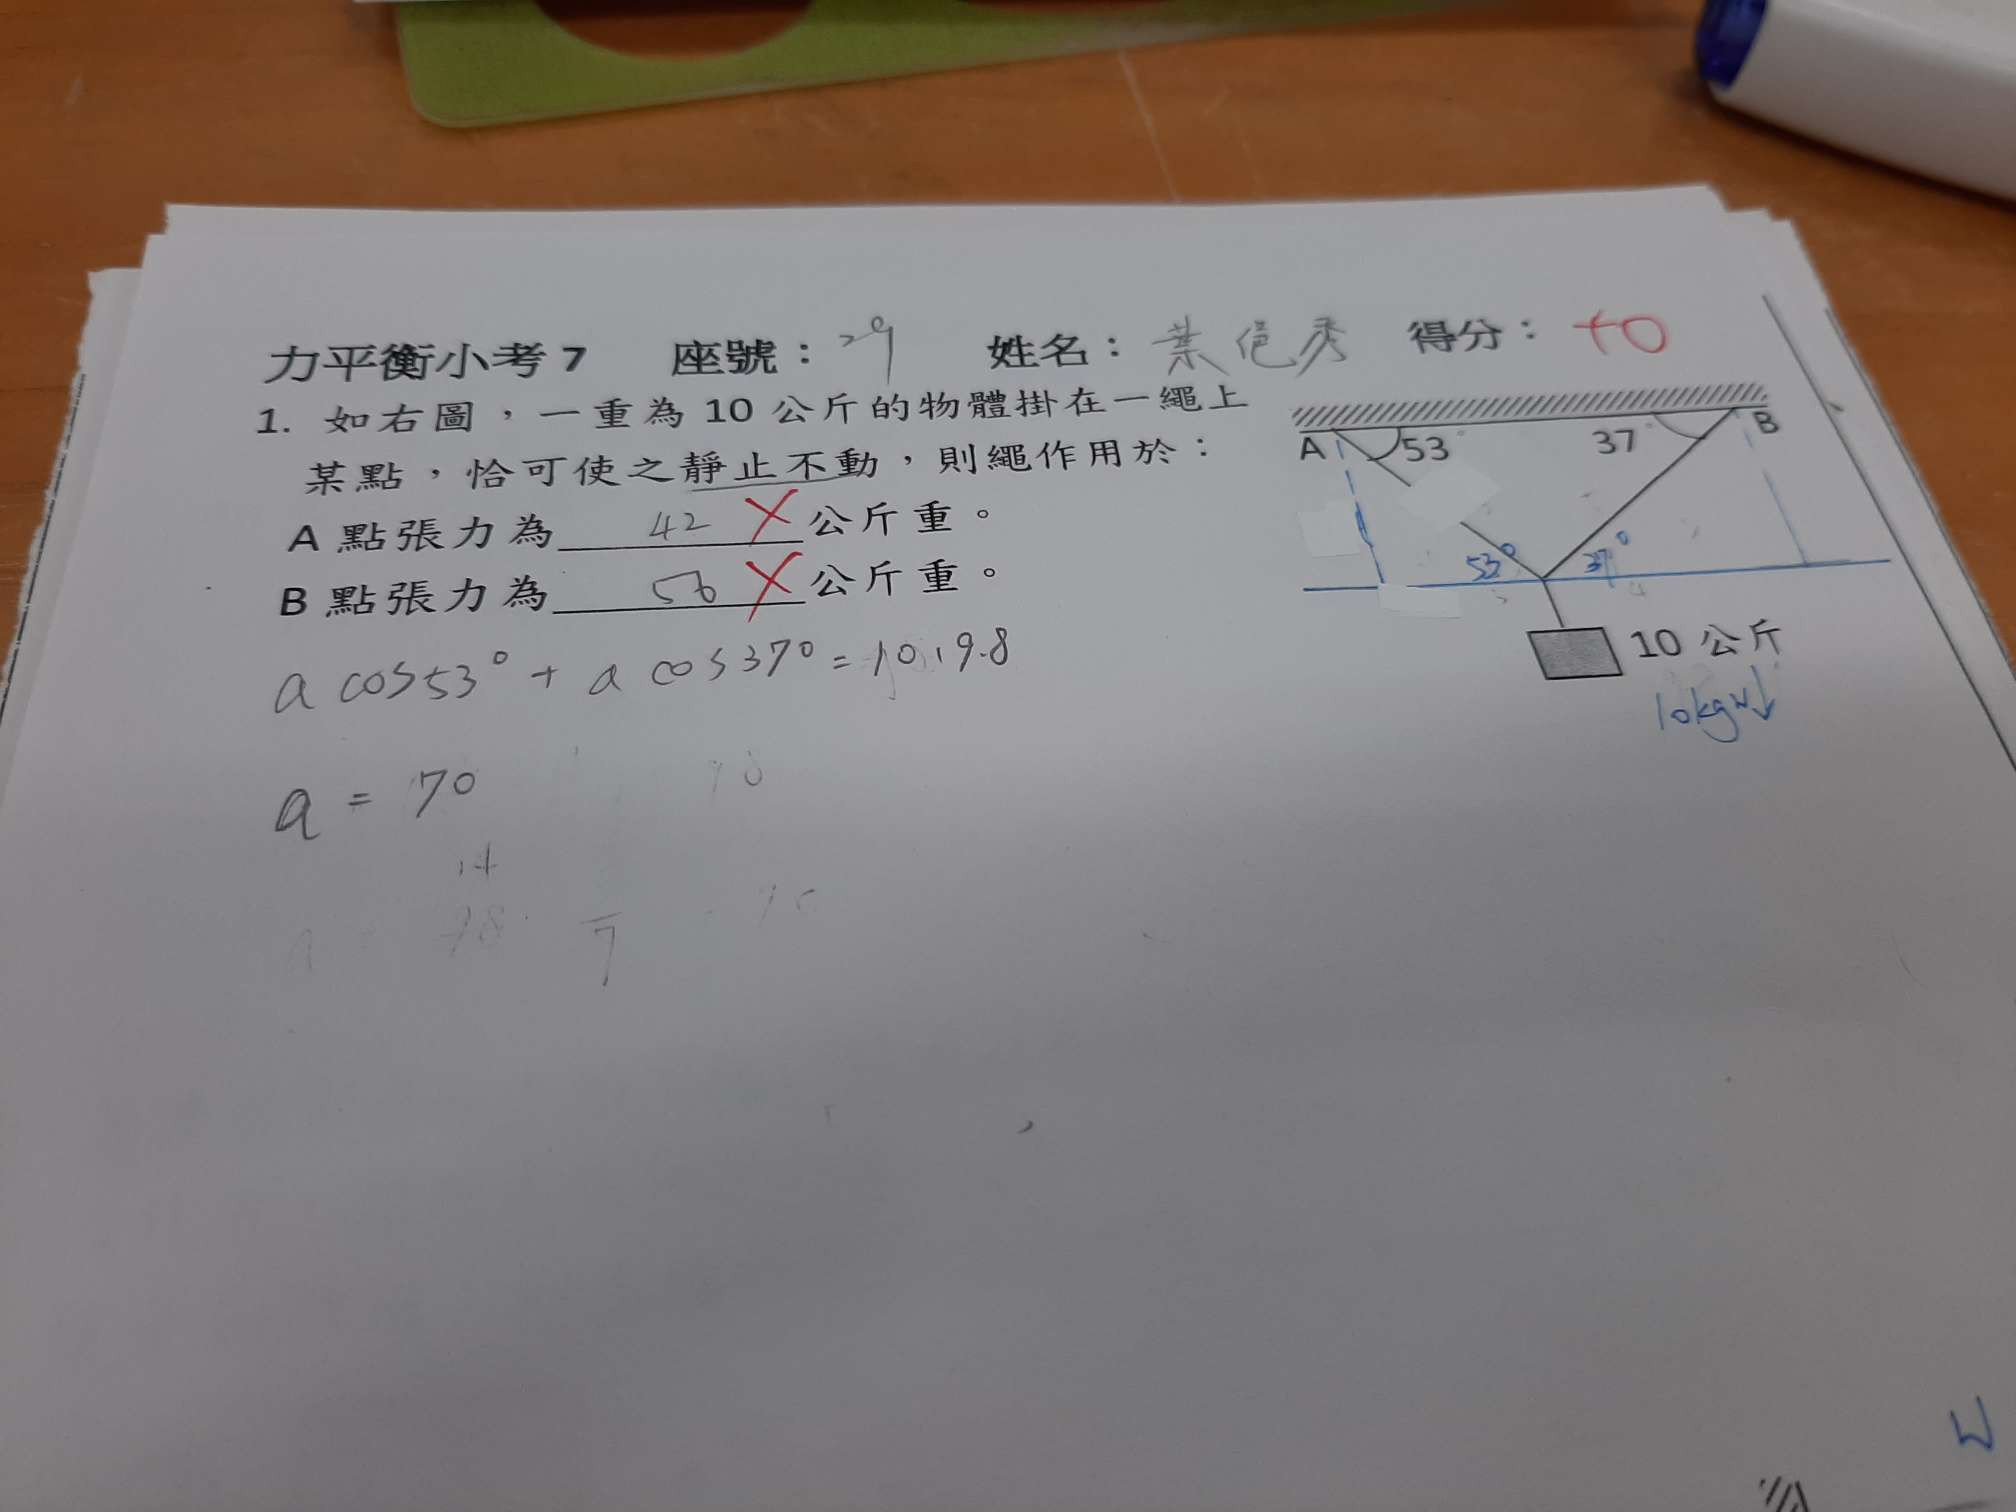 力平衡小考 7 座號：29 姓名：葉 秀 得分：+0
1. 如右圖，一重為 10 公斤的物體掛在一繩上
某點，恰可使之靜止不動，則繩作用於：
A 點張力為 42 X 公斤重。
B 點張力為 56 X 公斤重。
a cos53° + a cos37° = 10.19.8
a = 70
14
7
A 53° 37° B
53° 37°
10 公斤
10kgw↓